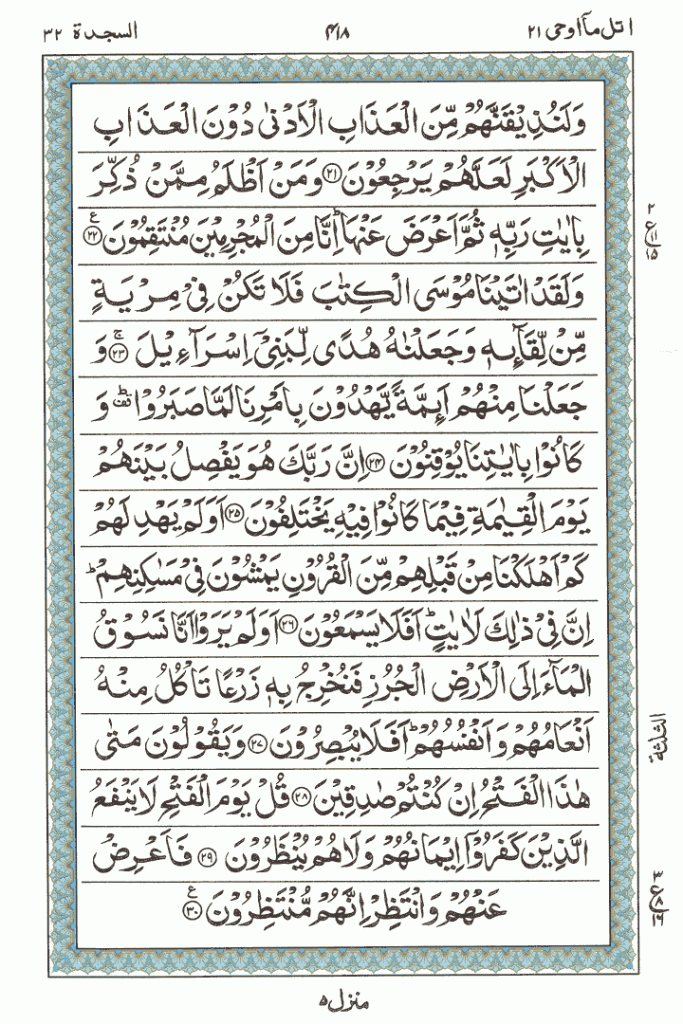 اتل مآ اوحی ۲۱ ۴۱۸ السجدة ۳۲
وَلَنُذِيْقَنَّهُمْ مِّنَ الْعَذَابِ الْاَدْنٰى دُوْنَ الْعَذَابِ
الْاَكْبَرِ لَعَلَّهُمْ يَرْجِعُوْنَ ۝۲۱ وَمَنْ اَظْلَمُ مِمَّنْ ذُكِّرَ
بِاٰيٰتِ رَبِّهٖ ثُمَّ اَعْرَضَ عَنْهَا ؕ اِنَّا مِنَ الْمُجْرِمِيْنَ مُنْتَقِمُوْنَ ۝۲۲ ع
وَلَقَدْ اٰتَيْنَا مُوْسَى الْكِتٰبَ فَلَا تَكُنْ فِىْ مِرْيَةٍ
مِّنْ لِّقَآىِٕهٖ وَجَعَلْنٰهُ هُدًى لِّبَنِىْۤ اِسْرَآءِيْلَ ۝۲۳ ۚ وَ
جَعَلْنَا مِنْهُمْ اَىِٕمَّةً يَّهْدُوْنَ بِاَمْرِنَا لَمَّا صَبَرُوْا ؕ۫ وَ
كَانُوْا بِاٰيٰتِنَا يُوْقِنُوْنَ ۝۲۴ اِنَّ رَبَّكَ هُوَ يَفْصِلُ بَيْنَهُمْ
يَوْمَ الْقِيٰمَةِ فِيْمَا كَانُوْا فِيْهِ يَخْتَلِفُوْنَ ۝۲۵ اَوَلَمْ يَهْدِ لَهُمْ
كَمْ اَهْلَكْنَا مِنْ قَبْلِهِمْ مِّنَ الْقُرُوْنِ يَمْشُوْنَ فِىْ مَسٰكِنِهِمْ ؕ
اِنَّ فِىْ ذٰلِكَ لَاٰيٰتٍ ؕ اَفَلَا يَسْمَعُوْنَ ۝۲۶ اَوَلَمْ يَرَوْا اَنَّا نَسُوْقُ
الْمَآءَ اِلَى الْاَرْضِ الْجُرُزِ فَنُخْرِجُ بِهٖ زَرْعًا تَاْكُلُ مِنْهُ
اَنْعَامُهُمْ وَاَنْفُسُهُمْ ؕ اَفَلَا يُبْصِرُوْنَ ۝۲۷ وَيَقُوْلُوْنَ مَتٰى
هٰذَا الْفَتْحُ اِنْ كُنْتُمْ صٰدِقِيْنَ ۝۲۸ قُلْ يَوْمَ الْفَتْحِ لَا يَنْفَعُ
الَّذِيْنَ كَفَرُوْۤا اِيْمَانُهُمْ وَلَا هُمْ يُنْظَرُوْنَ ۝۲۹ فَاَعْرِضْ
عَنْهُمْ وَانْتَظِرْ اِنَّهُمْ مُّنْتَظِرُوْنَ ۝۳۰ ع
۲
ع ۱۱
۱۵
الثلثة
۳
ع ۸
۱۶
منزل ۵